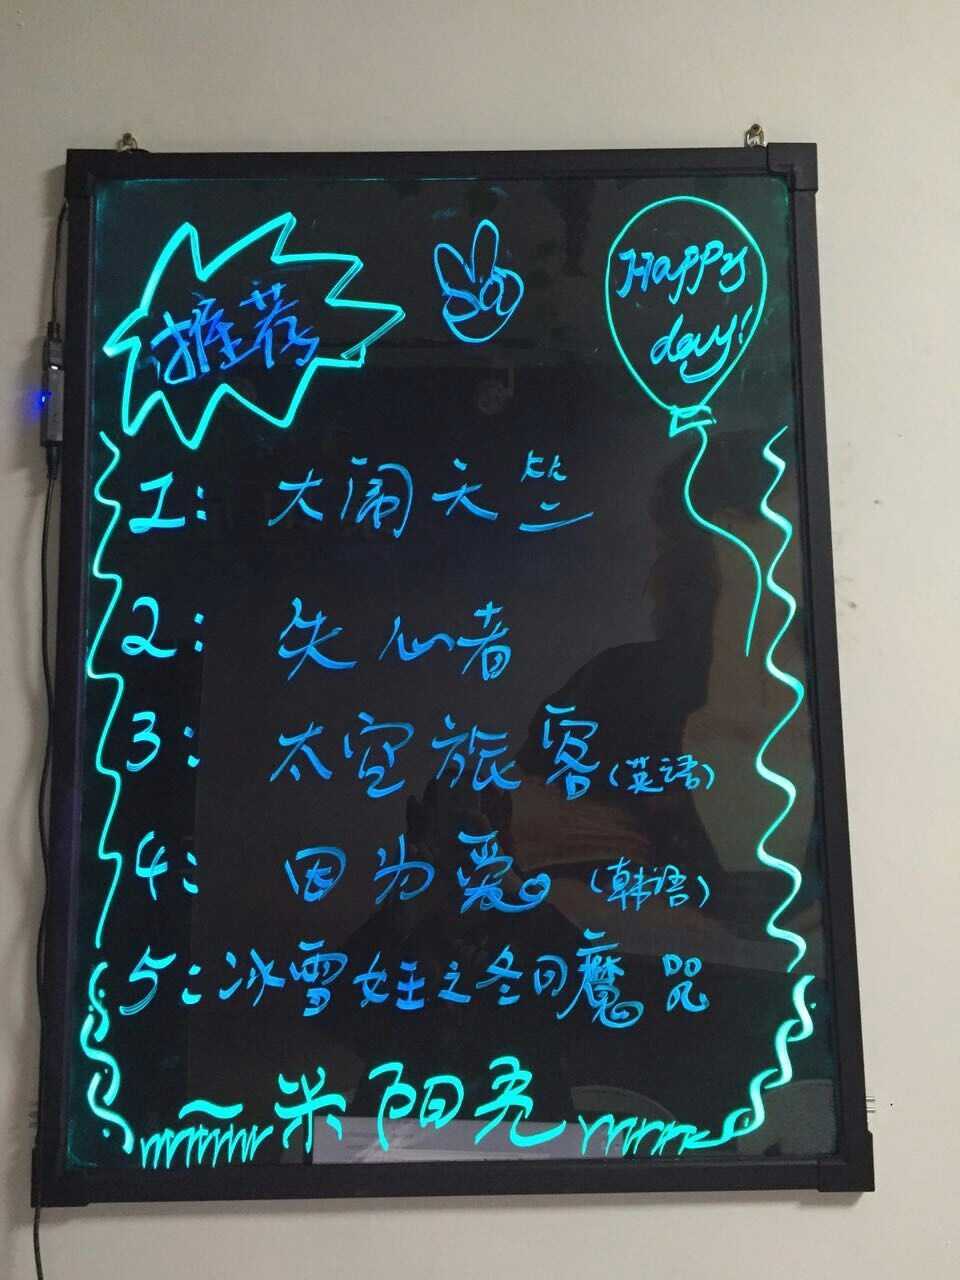 推荐
Happy
day!
1: 大闹天竺
2: 失心者
3: 太空旅客(英语)
4: 因为爱。(韩语)
5: 冰雪女王之冬日魔咒
一米阳光